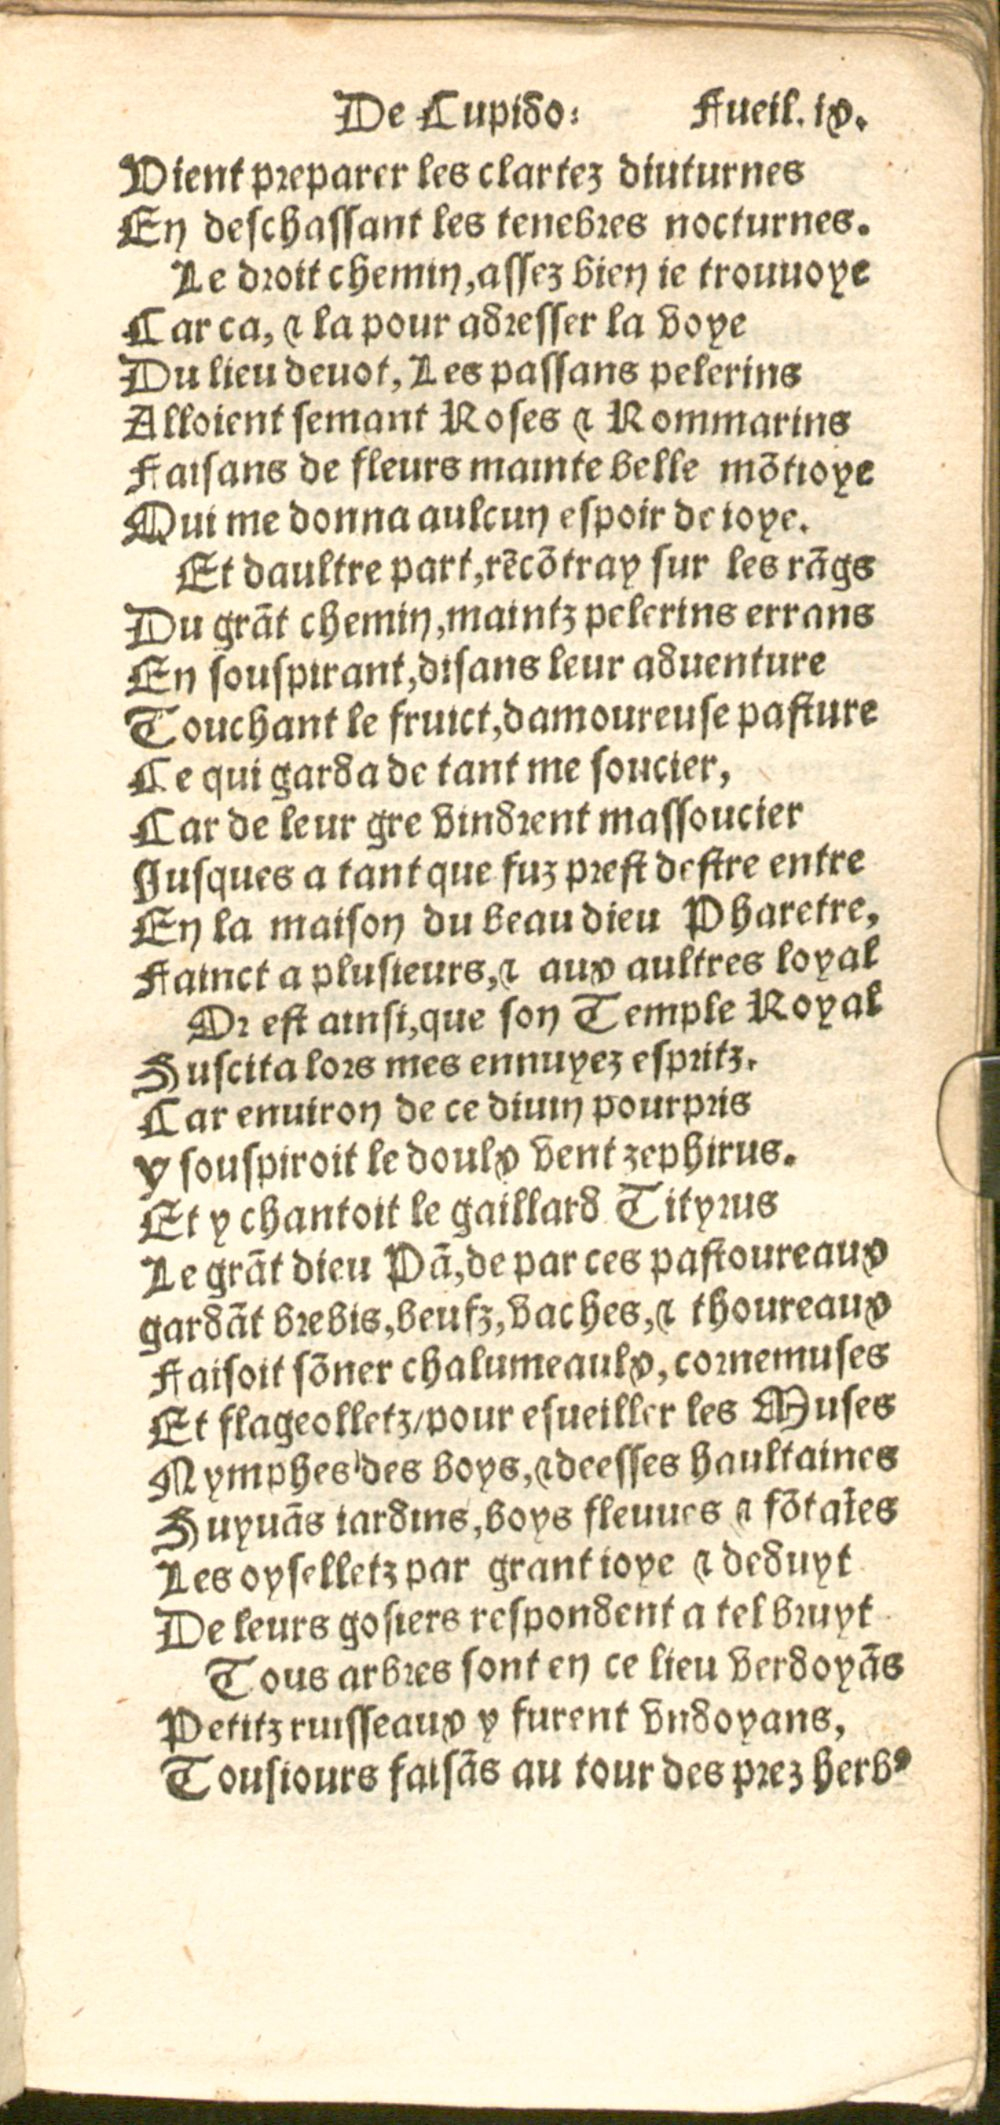 De Cupido: Fueil. ix.
Vient preparer les clartez diuturnes
En deschassant les tenebres nocturnes.
Le droit chemin, assez bien ie trouuoye
Car ca, & la pour adresser la voye
Du lieu deuot, Les passans pelerins
Alloient semant Roses & Rommarins
Faisans de fleurs mainte belle mõtioye
Qui me donna aulcun espoir de ioye.
Et daultre part, rẽcõtray sur les rãgs
Du grãt chemin, maintz pelerins errans
En souspirant, disans leur aduenture
Touchant le fruict, damoureuse pasture
Ce qui garda de tant me soucier,
Car de leur gre vindrent massoucier
Jusques a tant que fuz prest destre entre
En la maison du beau dieu Pharetre,
Fainct a plusieurs, & aux aultres loyal
Or est ainsi, que son Temple Royal
Suscita lors mes ennuyez espritz.
Car enuiron de ce diuin pourpris
y souspiroit le doulx vent zephirus.
Et y chantoit le gaillard Tityrus
Le grãt dieu Pã, de par ces pastoureaux
gardãt brebis, beufz, vaches, & thoureaux
Faisoit sõner chalumeaulx, cornemuses
Et flageolletz/ pour esueiller les Muses
Nymphes des boys, & deesses haultaines
Suyuãs iardins, boys fleuues & fõtaĩes
Les oyselletz par grant ioye & deduyt
De leurs gosiers respondent a tel bruyt
Tous arbres sont en ce lieu verdoyãs
Petitz ruisseaux y furent vndoyans,
Tousiours faisãs au tour des prez herbꝰ